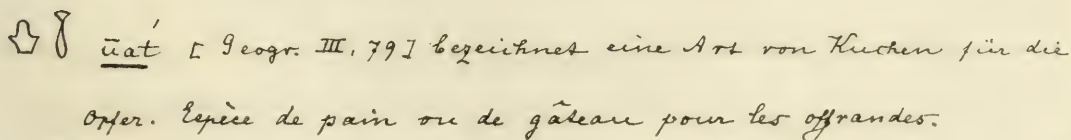 ūat́ [Geogr. III, 79] bezeichnet eine Art von Kuchen für die
Opfer. Espèce de pain ou de gâteau pour les offrandes.